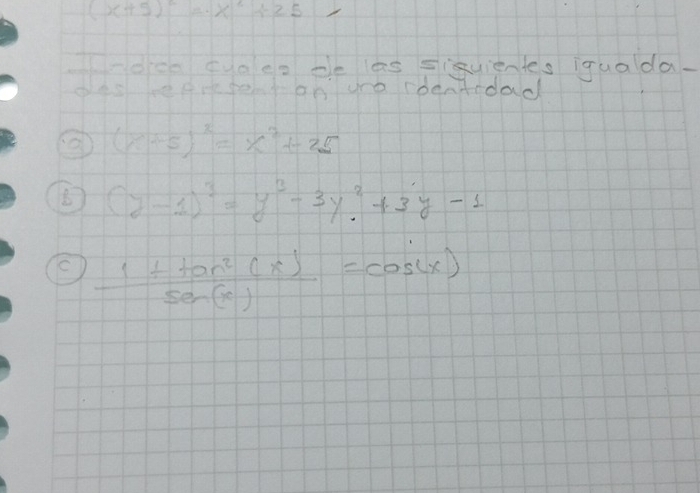 (x+5)² = x² + 25
Indica cuales de las siguientes igualda-
des representan una identidad
a) (x+5)² = x² + 25
b) (y-1)³ = y³ - 3y² + 3y - 1
c) 1 + tan² (x) = cos(x)
sen(x)